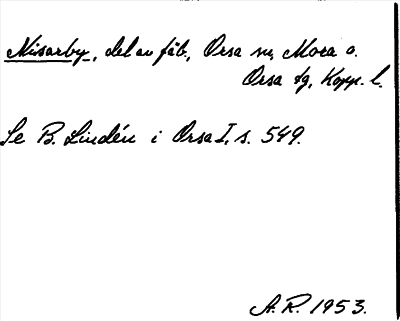 Misarby, del av fäb., Orsa sn, Mora o.
Orsa tg, Kopp. l.
Se B. Lindén i Orsa I, s. 549.
A.R. 1953.